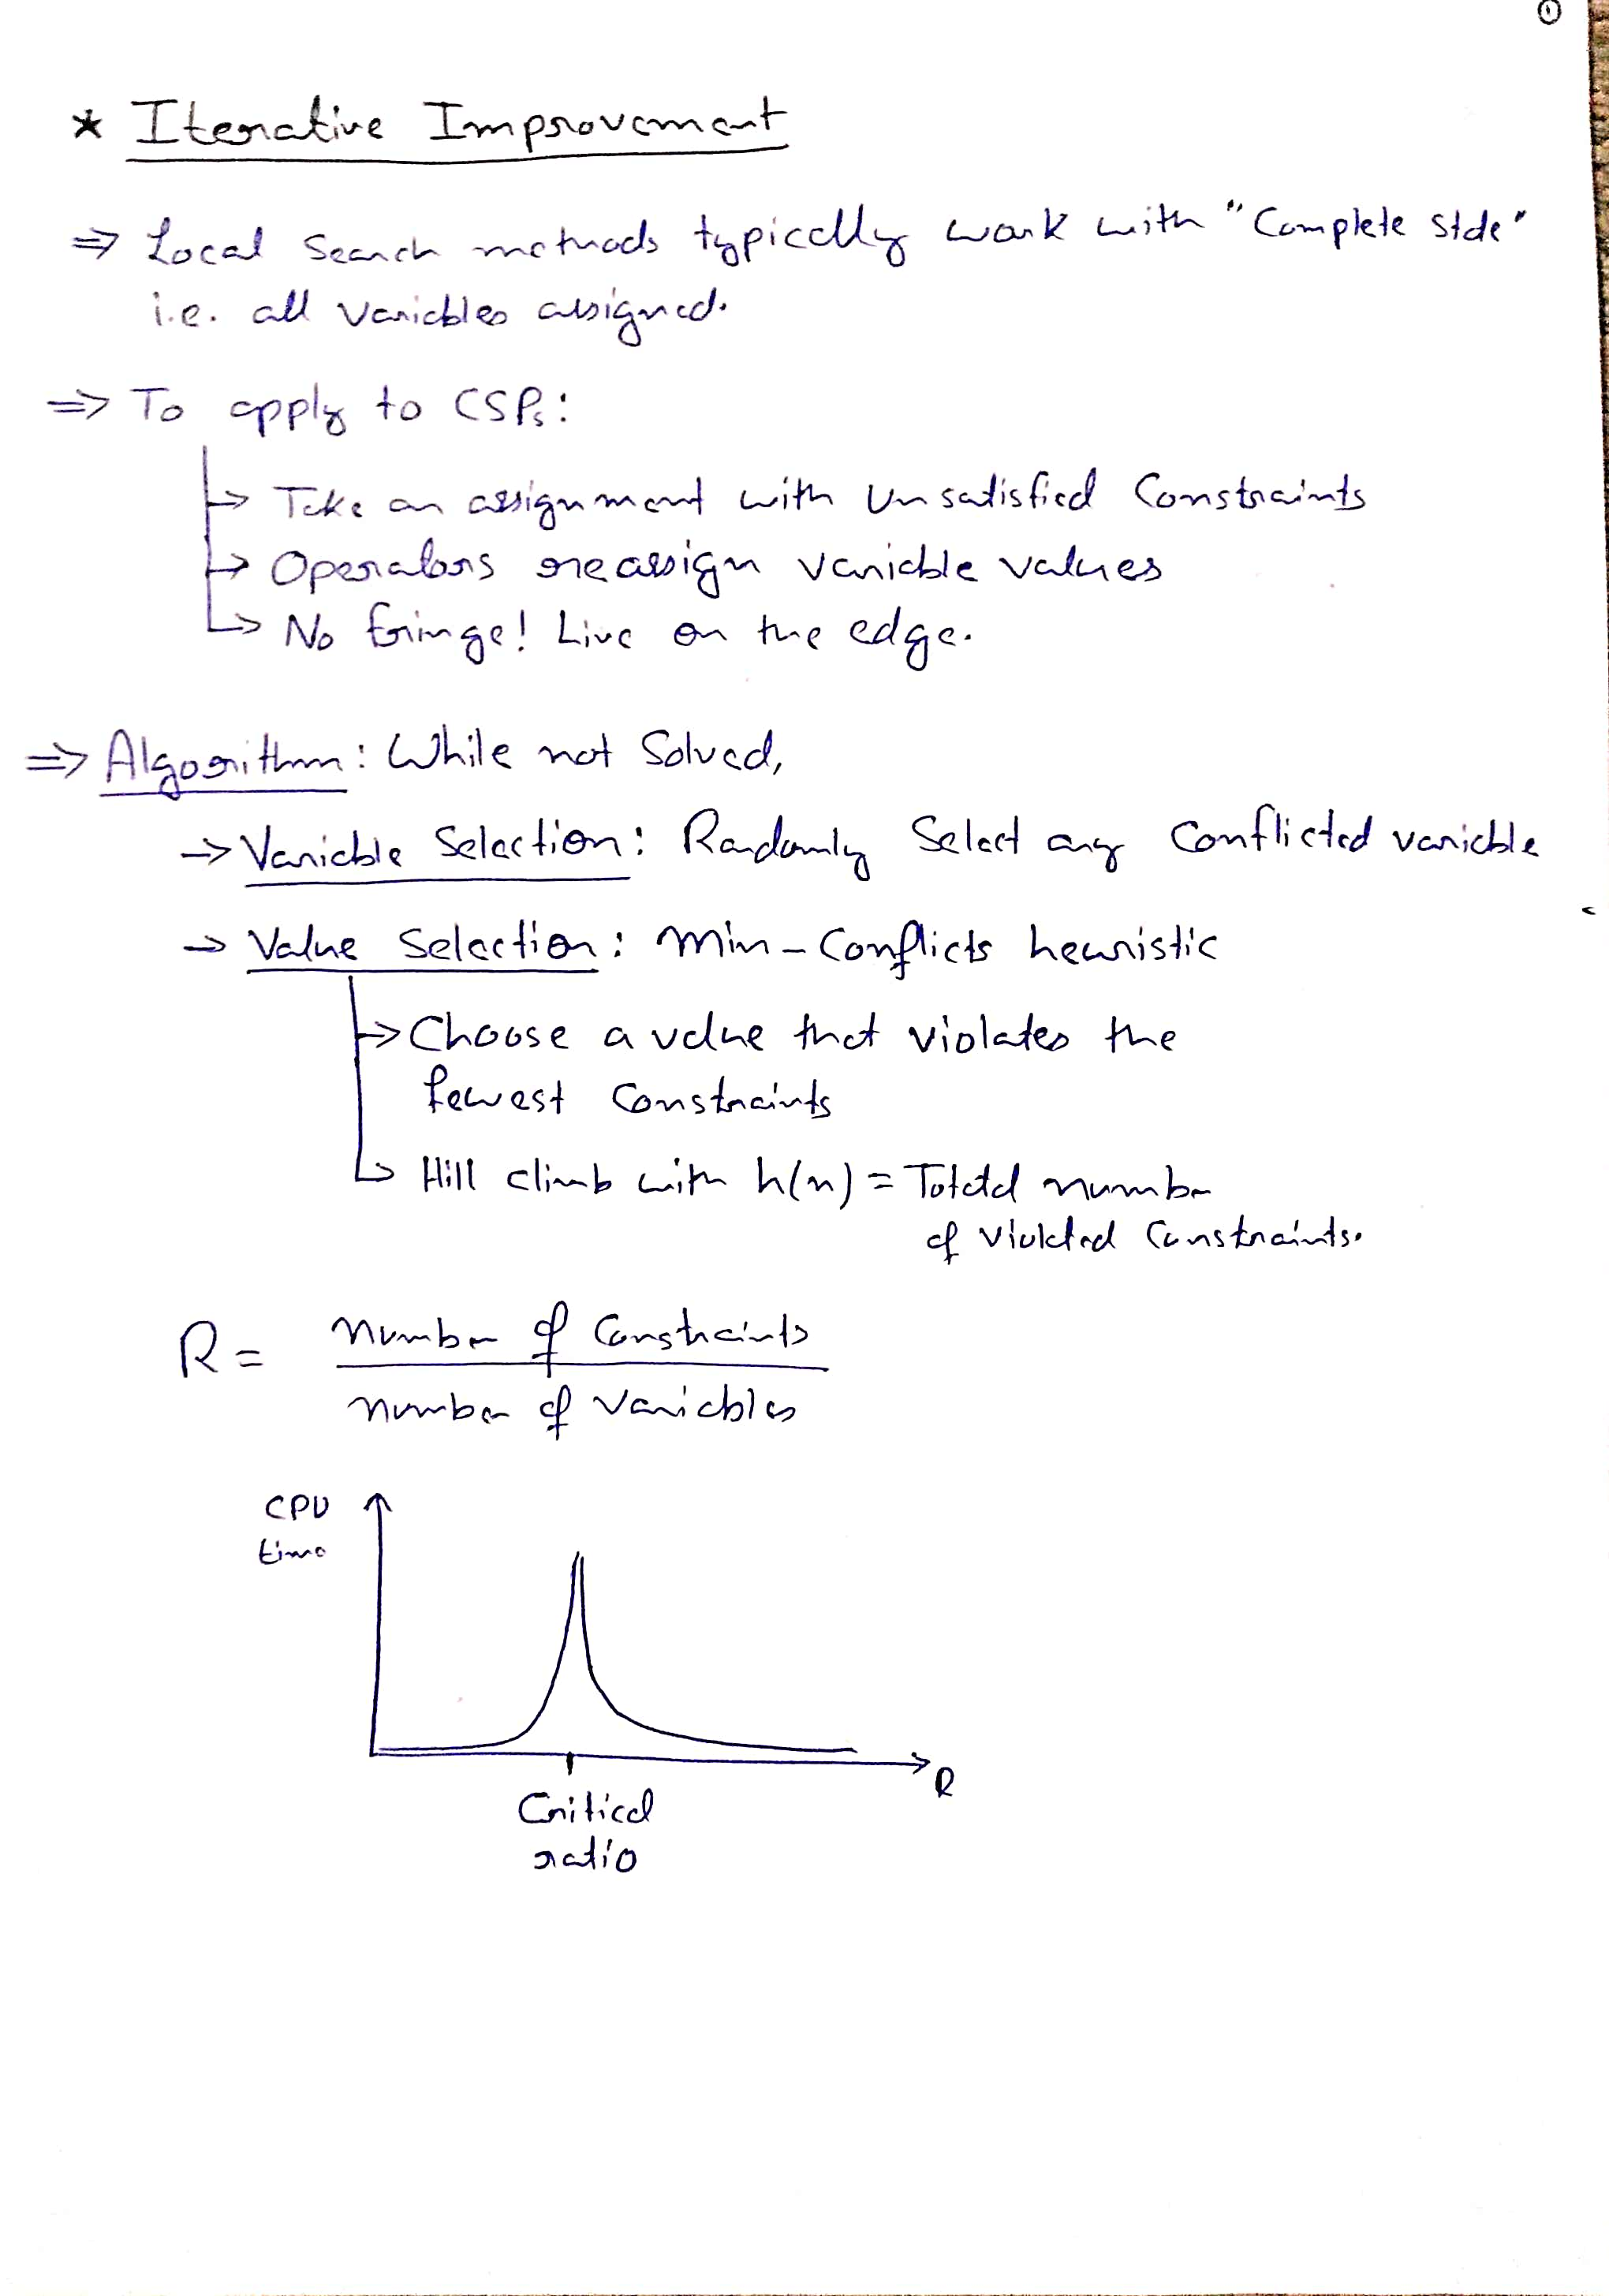 ①
* Iterative Improvement
⇒ Local Search methods typically work with "Complete State"
i.e. all variables assigned.
⇒ To apply to CSPs:
↳ Take an assignment with Unsatisfied Constraints
↳ Operators reassign variable values
↳ No fringe! Live on the edge.
⇒ Algorithm: While not Solved,
→ Variable Selection: Randomly Select any Conflicted variable
→ Value Selection: Min-Conflicts heuristic
↳ Choose a value that violates the
fewest Constraints
↳ Hill climb with h(n) = Total number
of violated Constraints.
R = Number of Constraints
Number of variables
CPU
time
R
Critical
ratio